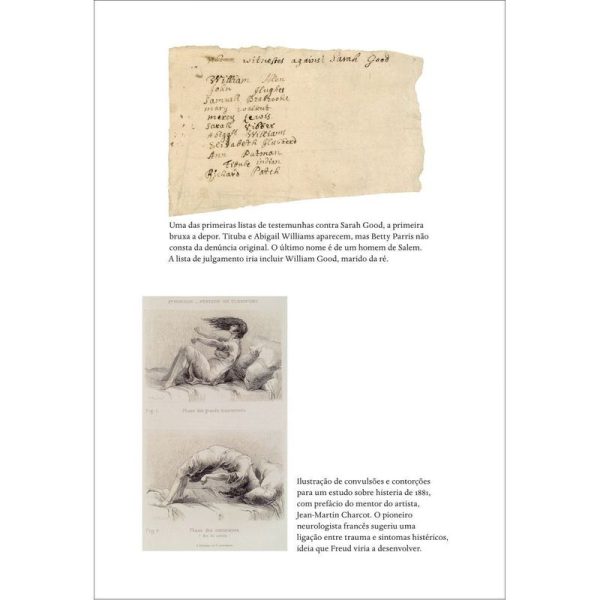 witnesses against Sarah Good
William Allen
John Hughes
Samuell Brabrooke
mary walcut
mercy Lewis
Sarah Vibber
Abigall Williams
Elizabeth Hubberd
Ann Putman
Tittube indian
Richard Patch
Uma das primeiras listas de testemunhas contra Sarah Good, a primeira
bruxa a depor. Tituba e Abigail Williams aparecem, mas Betty Parris não
consta da denúncia original. O último nome é de um homem de Salem.
A lista de julgamento iria incluir William Good, marido da ré.
PÉRIODE DE CLOWNISME
Fig. 1.
Phase des grands mouvements
Fig. 2
Phase des contorsions
Ilustração de convulsões e contorções
para um estudo sobre histeria de 1881,
com prefácio do mentor do artista,
Jean-Martin Charcot. O pioneiro
neurologista francês sugeriu uma
ligação entre trauma e sintomas histéricos,
ideia que Freud viria a desenvolver.